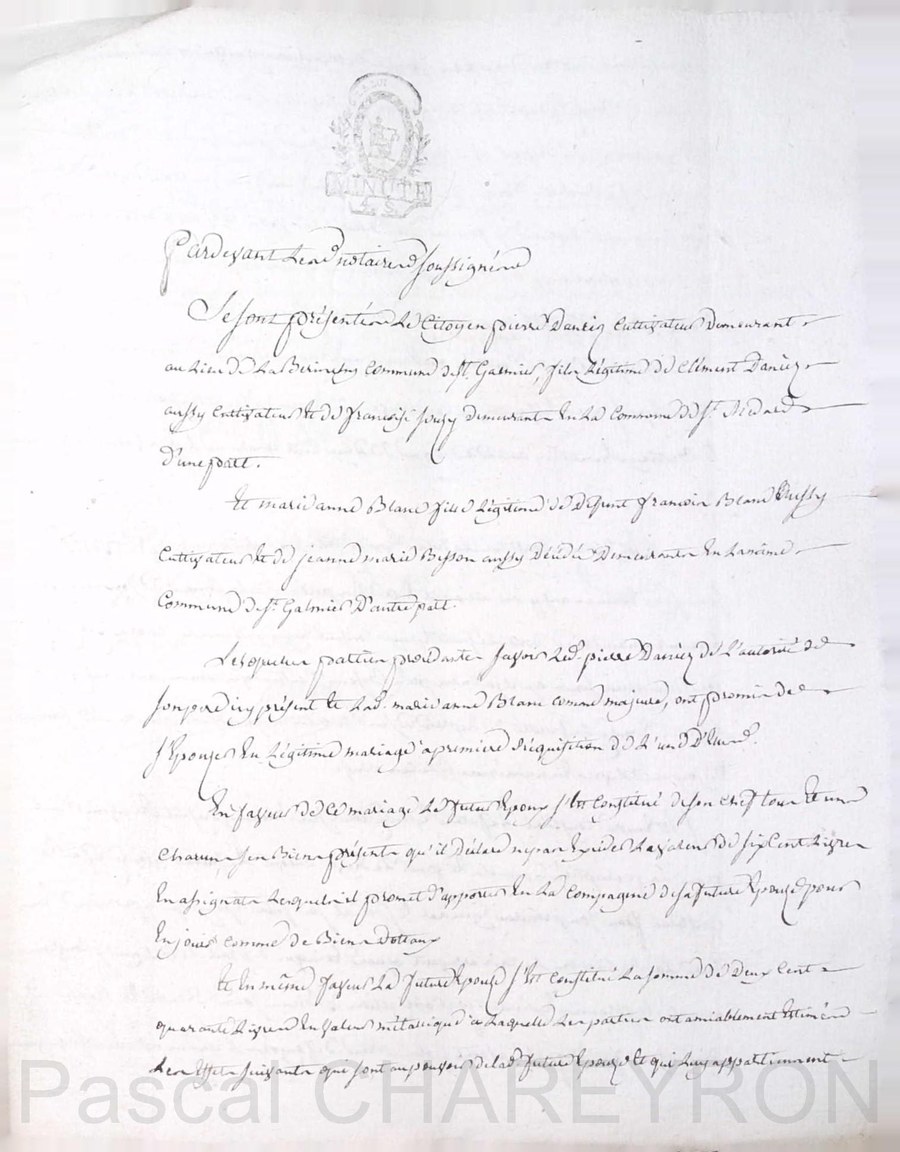 LA LOI
MINUTE
4. S.
Pardevant Les notaires soussignés
Se sont présentés Le Citoyen pierre Daniéz Cultivateur Demeurant
au Lieu de La commune de St. Galmier, fils Légitime de Clément Daniéz
aussy Cultivateur Et de françoise Jouzy demeurants En La Commune de St. Médard
D'une part.
Et marie anne Blanc fille Légitime de Defunt françois Blanc aussy
Cultivateur Et de jeanne marie Bisson aussy Décédée Demeurante En La même
Commune de St. Galmier D'autre part.
Lesquelles parties procédantes sçavoir Led. pierre Daniéz de L'autorité de
son pere icy présent Et Lad. marie anne Blanc comme majeure, ont promis de
s'Epouser En Légitime mariage a première réquisition de L'un d'Eux.
En faveur de Ce mariage Le futur Epoux s'Est Constitué de son Chef tous Et un
Chacuns ses Biens présents qu'il Déclare ne pas Exceder La valeur de six Cent Livres
En assignats Lesquels il promet d'apporter En La Compagnie de sa future Epouse pour
En jouir Comme de Biens Dottaux
Et En même faveur La future Epouse s'Est Constitué La somme de Deux Cent
quarante Livres En valeur métalique a Laquelle Les parties ont amiablement Estimés
Les Effets suivants que sont au pouvoir de lad. future Epouse Et qui Luy appartiennent
Pascal CHAREYRON